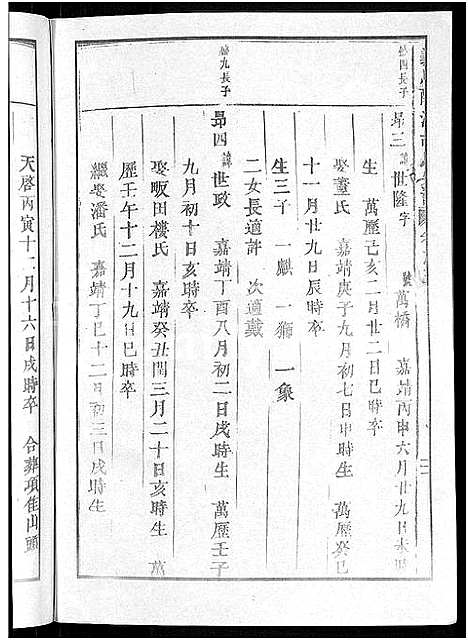 昻三 諱世隆 字 號萬橋 嘉靖丙申六月廿九日未時
生 萬歷己亥二月廿二日巳時卒
娶董氏 嘉靖庚子九月初七日申時生 萬歷癸巳
十一月廿九日辰時卒
生三子 一麒 一獅 一象
二女長適許 次適戴
九長子
昻四 諱世政 嘉靖丁酉八月初二日戌時生 萬歷壬子
九月初十日亥時卒
娶畈田樓氏 嘉靖癸丑閏三月二十日亥時生 萬
歷壬午十二月十九日巳時卒
繼娶潘氏 嘉靖丁巳十二月初三日戌時生
天啓丙寅十二月十六日戌時卒 合葬項隹山頭